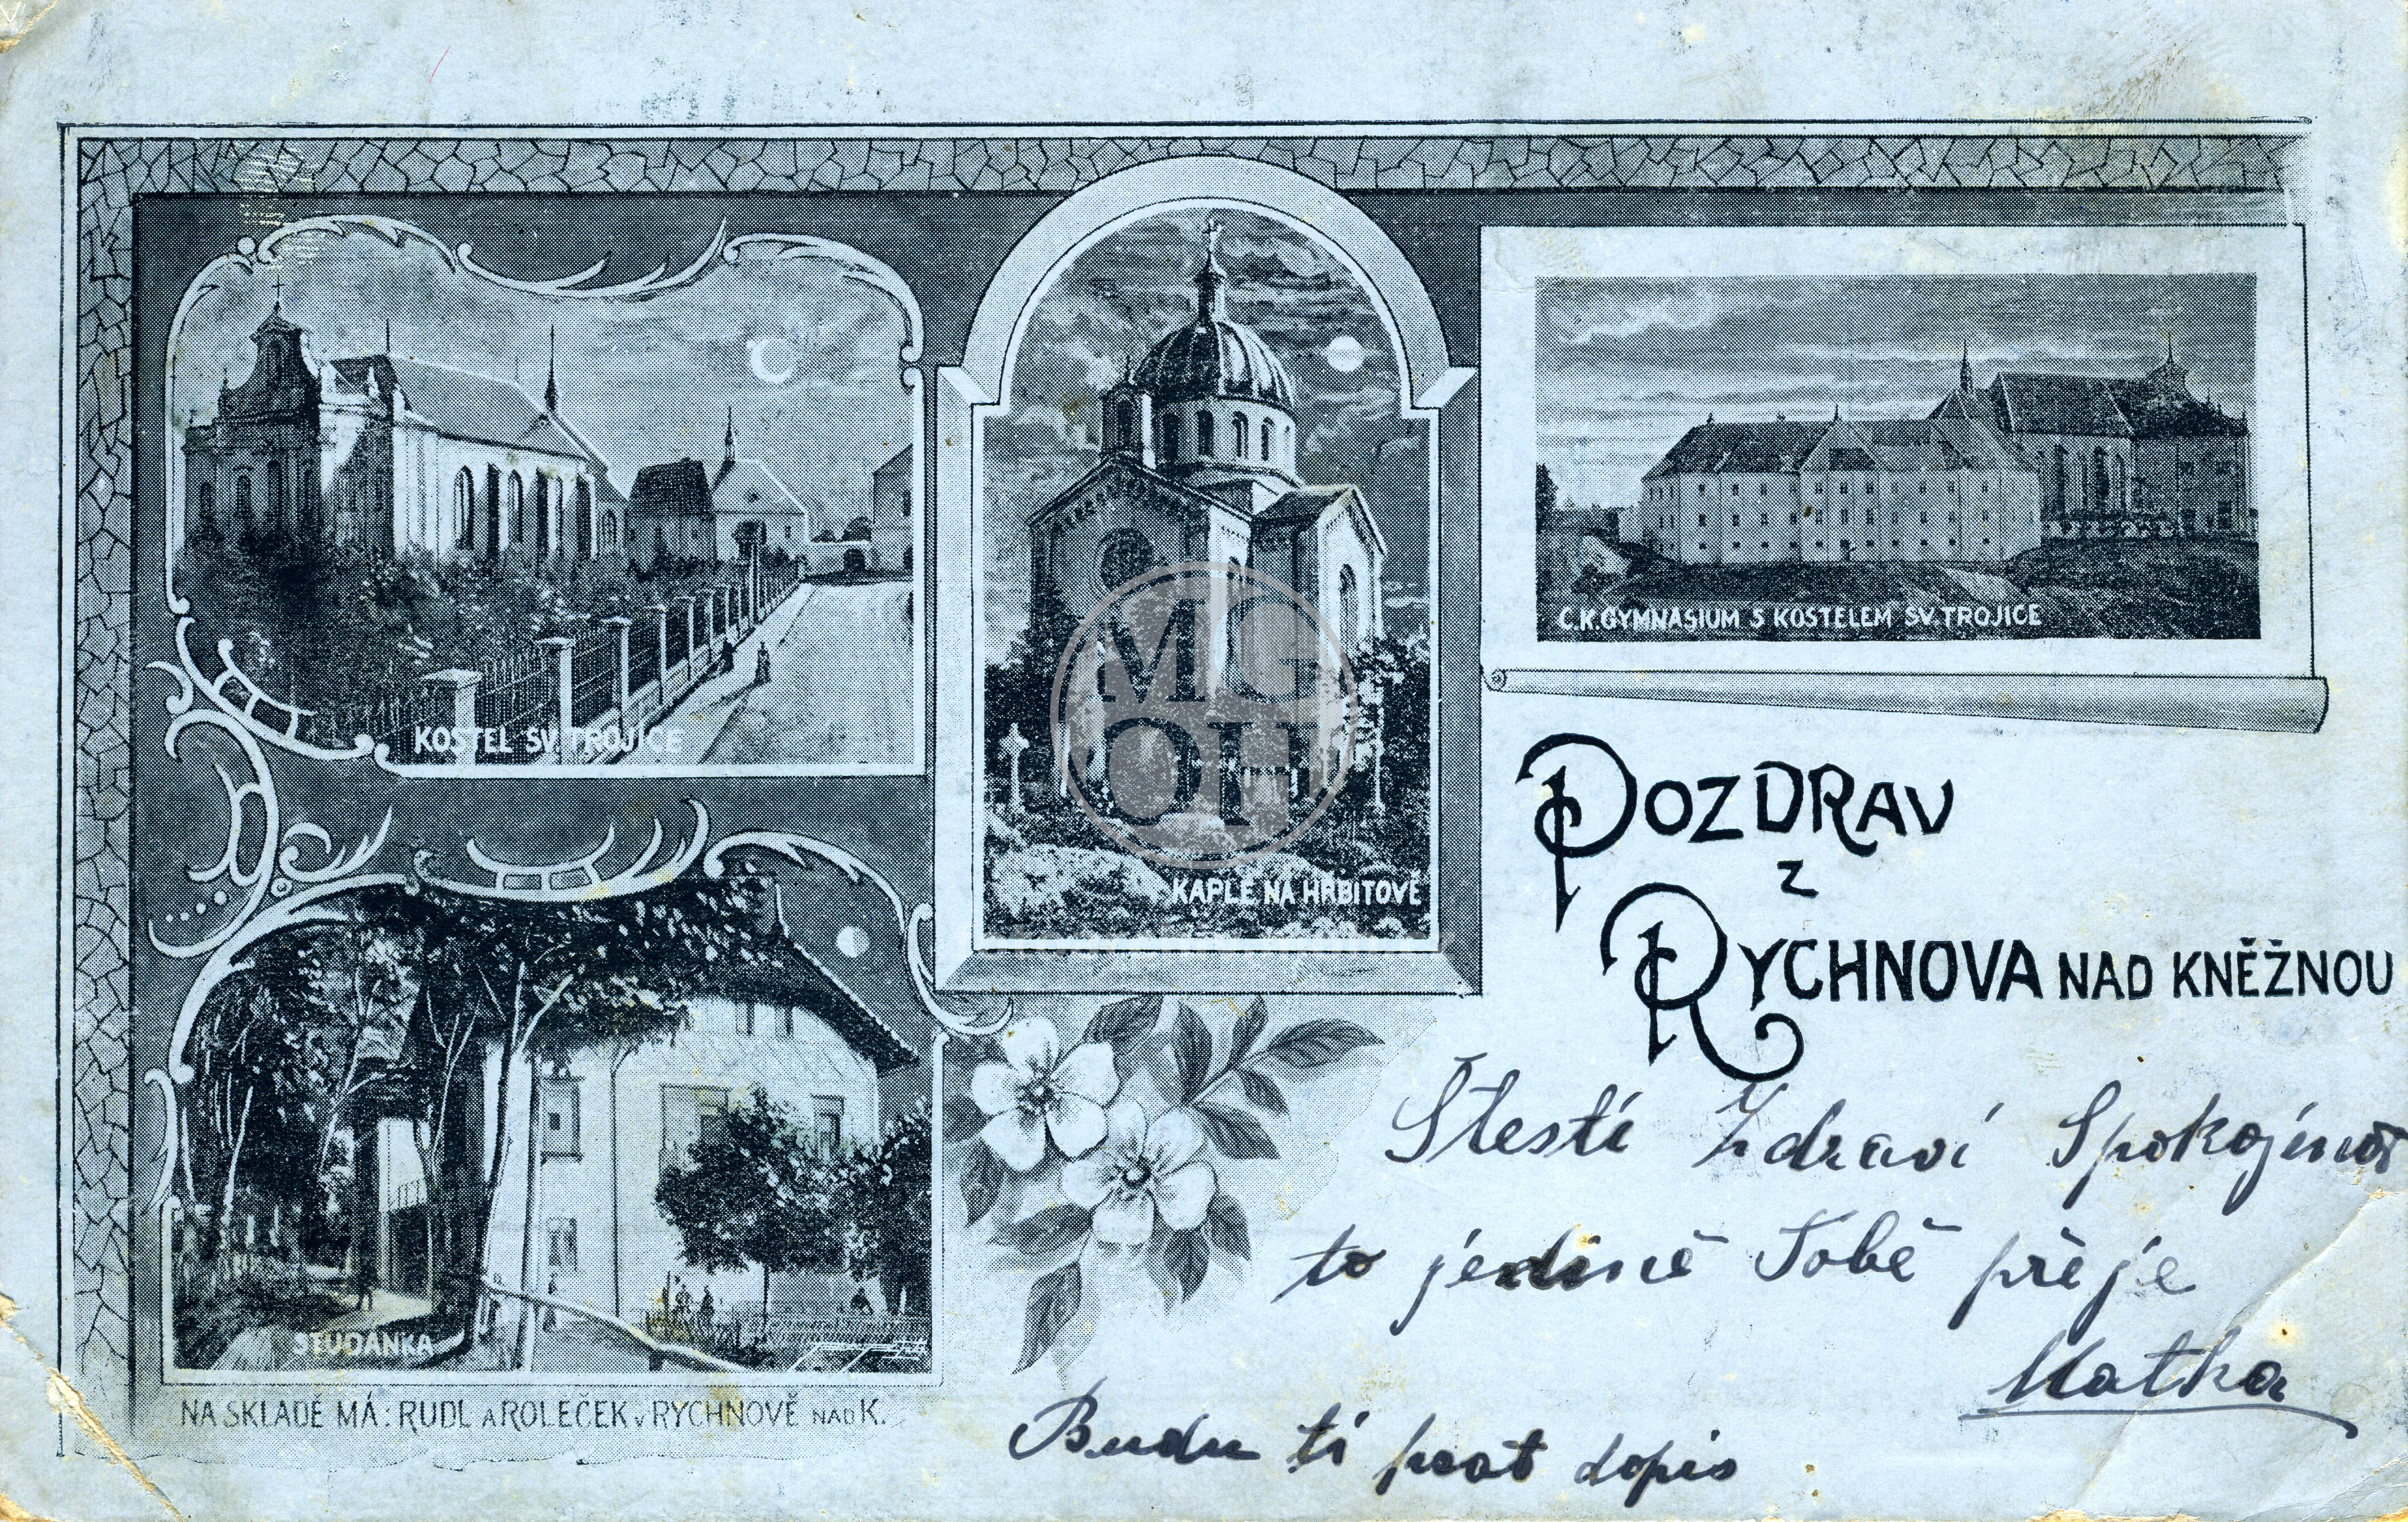 KOSTEL SV. TROJICE
KAPLE NA HŘBITOVĚ
C.K. GYMNASIUM S KOSTELEM SV. TROJICE
MG
OH
POZDRAV
Z
RYCHNOVA NAD KNĚŽNOU
STUDÁNKA
NA SKLADĚ MÁ: RUDL A ROLEČEK V RYCHNOVĚ NAD K.
Štestí Zdraví Spokojenost
to jedině Tobě přeje
Matka
Budu ti psat dopis